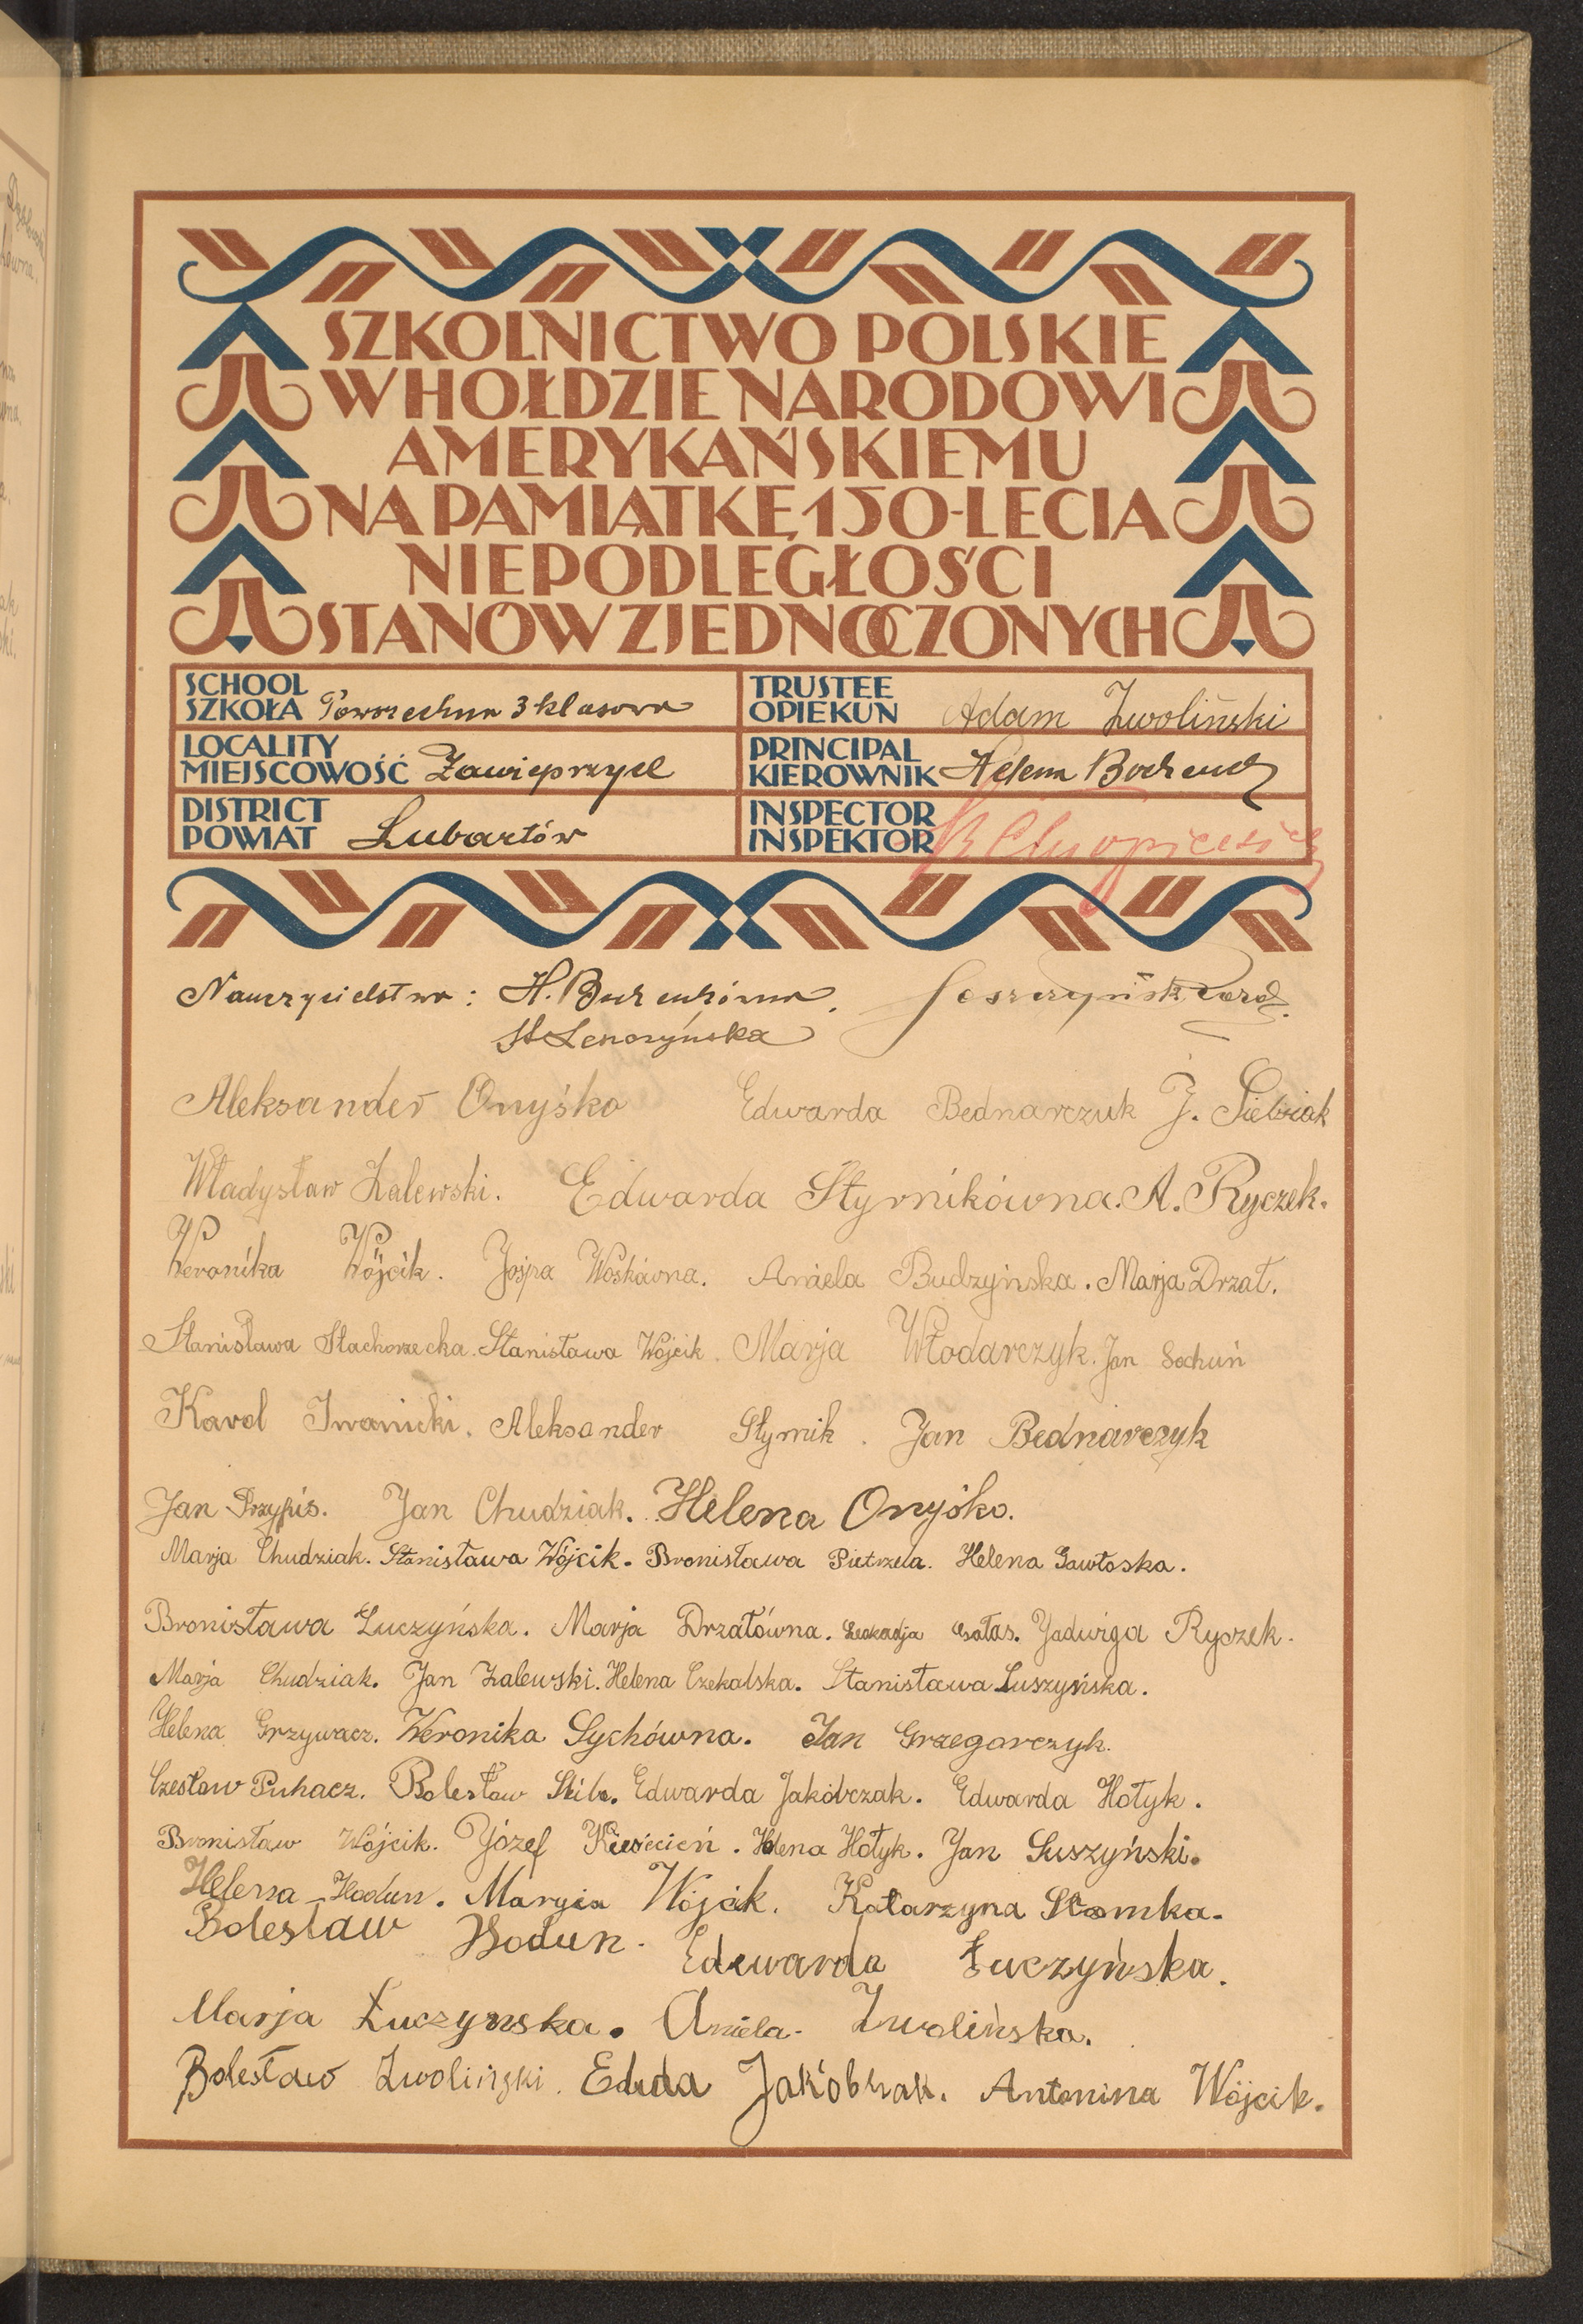 SZKOLNICTWO POLSKIE
W HOŁDZIE NARODOWI
AMERYKAŃSKIEMU
NA PAMIĄTKĘ 150-LECIA
NIEPODLEGŁOŚCI
STANÓW ZJEDNOCZONYCH
SCHOOL
SZKOŁA Powszechna 3 klasowa
TRUSTEE
OPIEKUN Adam Zwoliński
LOCALITY
MIEJSCOWOŚĆ Zawieprzyce
PRINCIPAL
KIEROWNIK Helena
DISTRICT
POWIAT Lubartów
INSPECTOR
INSPEKTOR
Nauczycielstwo: H.
St.
Aleksander Onyśko Edwarda Bednarczuk J. Siebiak
Władysław Zalewski. Edwarda Styrnikówna. A. Ryczek.
Weronika Wójcik. Woskówna. Aniela Budzyńska. Marja Drzał.
Stanisława Stachorzecka. Stanisława Wójcik. Marja Włodarczyk. Jan Sochuń
Karol Iwanicki. Aleksander Styrnik. Jan Bednarczyk
Jan Przypis. Jan Chudziak. Helena Onyśko.
Marja Chudziak. Stanisława Wójcik. Bronisława Pietrzela. Helena Gawłoska.
Bronisława Łuczyńska. Marja Drzałówna. Leokadja Jadwiga Ryczek.
Marja Chudziak. Jan Zalewski. Helena Czekalska. Stanisława Suszyńska.
Helena Grzywacz. Weronika Sychówna. Jan Grzegorczyk.
Czesław Puhacz. Bolesław Skiba. Edwarda Jakóbczak. Edwarda Hołyk.
Bronisław Wójcik. Józef Kwiecień. Helena Hołyk. Jan Suszyński.
Helena Hodun. Maryia Wójcik. Katarzyna Słomka.
Bolesław Hodun. Edwarda Łuczyńska.
Marja Łuczynska. Aniela Zwolińska.
Bolesław Zwoliński. Jakóbczak. Antonina Wójcik.